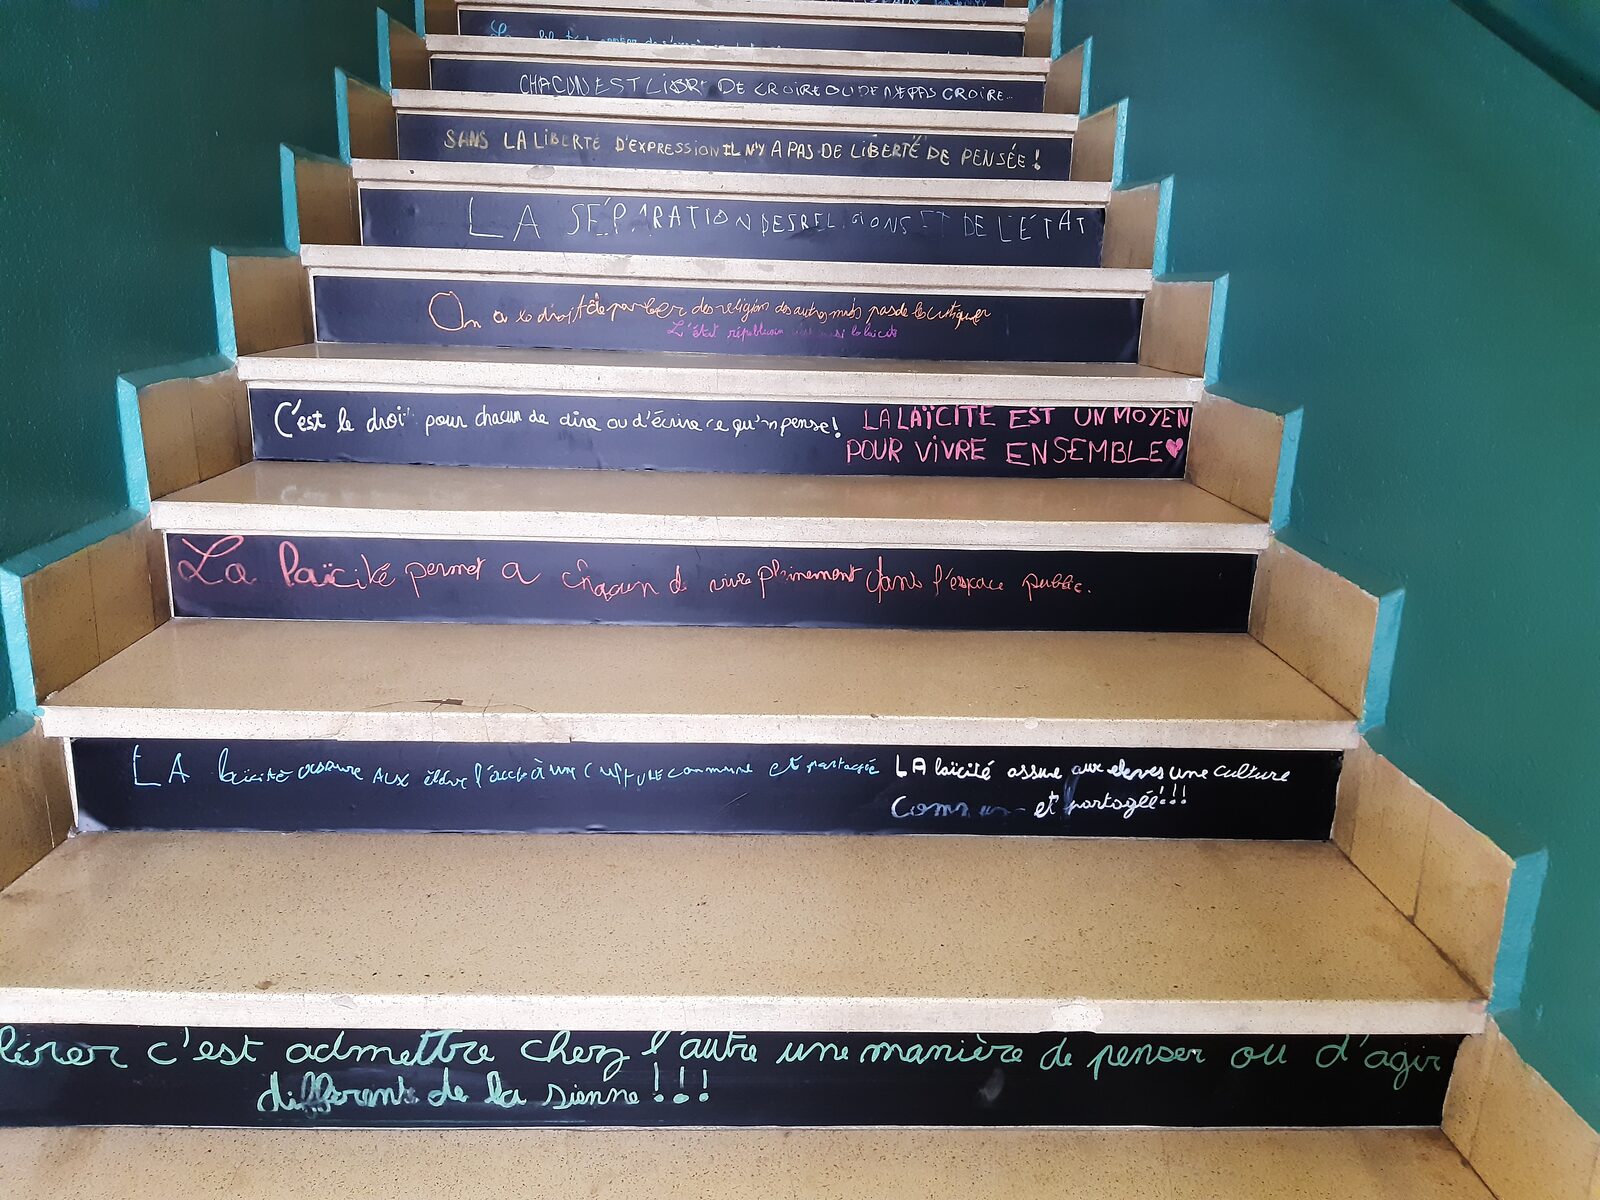 CHACUN EST LIBRE DE CROIRE OU DE NE PAS CROIRE...
SANS LA LIBERTÉ D'EXPRESSION IL N'Y A PAS DE LIBERTÉ DE PENSÉE !
LA SÉPARATION DES RELIGIONS ET DE L'ÉTAT
On a le droit de parler des religion des autres mais pas de le critiquer
L'état républicain aussi la laïcité
C'est le droit pour chacun de dire ou d'écrire ce qu'on pense !
LA LAÏCITÉ EST UN MOYEN
POUR VIVRE ENSEMBLE♥
La laïcité permet a chacun de vivre pleinement dans l'espace public.
LA laïcité assure aux élève l'accè à une CULTURE commune et partagée
LA laïcité assure aux eleves une culture
Commun et partagée !!!
lérer c'est admettre chez l'autre une manière de penser ou d'agir
différent de la sienne !!!